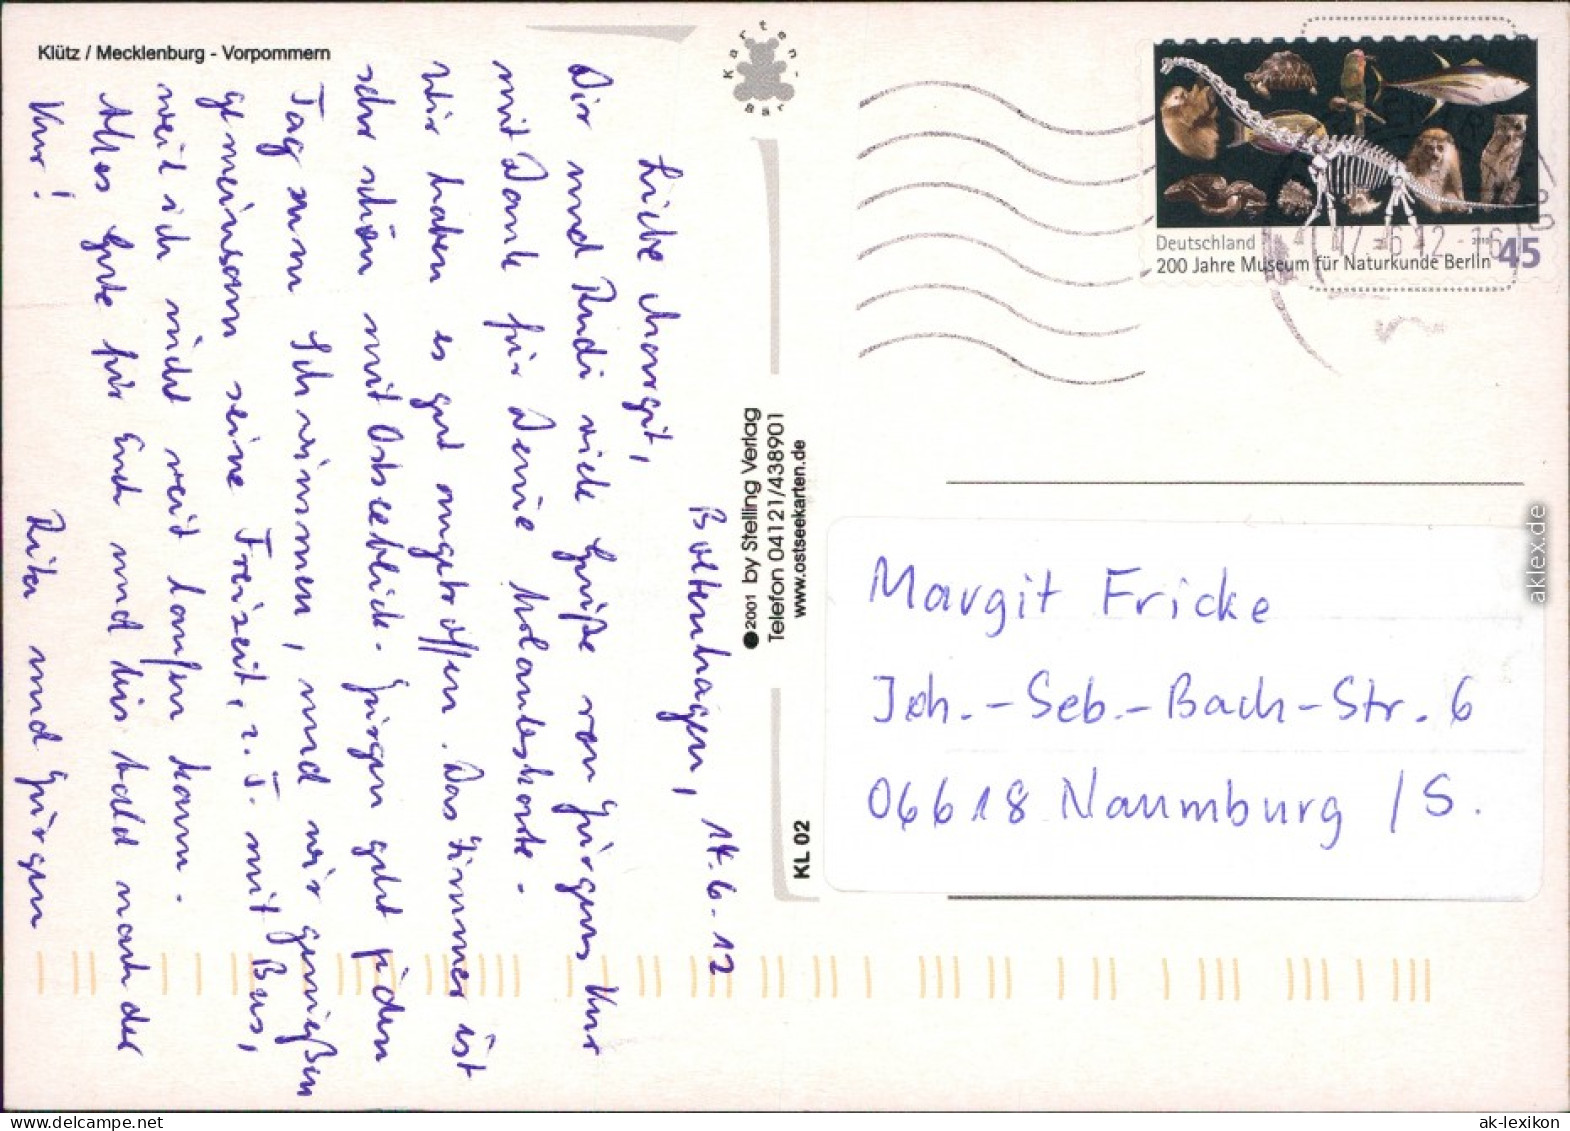 Klütz / Mecklenburg - Vorpommern
Karten-
Bär
Boltenhagen, 14.6.12
Liebe Margit,
Dir und Rudi viele Grüße von Jürgens Kur
mit Dank für Deine Urlaubskarte.
Wir haben es gut angetroffen. Das Zimmer ist
sehr schön mit Ostseeblick. Jürgen geht jeden
Tag zum Schwimmen, und wir genießen
gemeinsam seine Freizeit, z. T. mit Bus,
weil ich nicht weit laufen kann.
Alles Gute für Euch und bis bald nach der
Kur!
Rita und Jürgen
●2001 by Stelling Verlag
Telefon 04121/438901
www.ostseekarten.de
KL 02
Deutschland
2010
45
200 Jahre Museum für Naturkunde Berlin
Margit Fricke
Joh.-Seb.-Bach-Str. 6
06618 Naumburg / S.
aklex.de
ak-lexikon